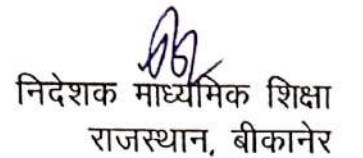 निदेशक माध्यमिक शिक्षा
राजस्थान, बीकानेर